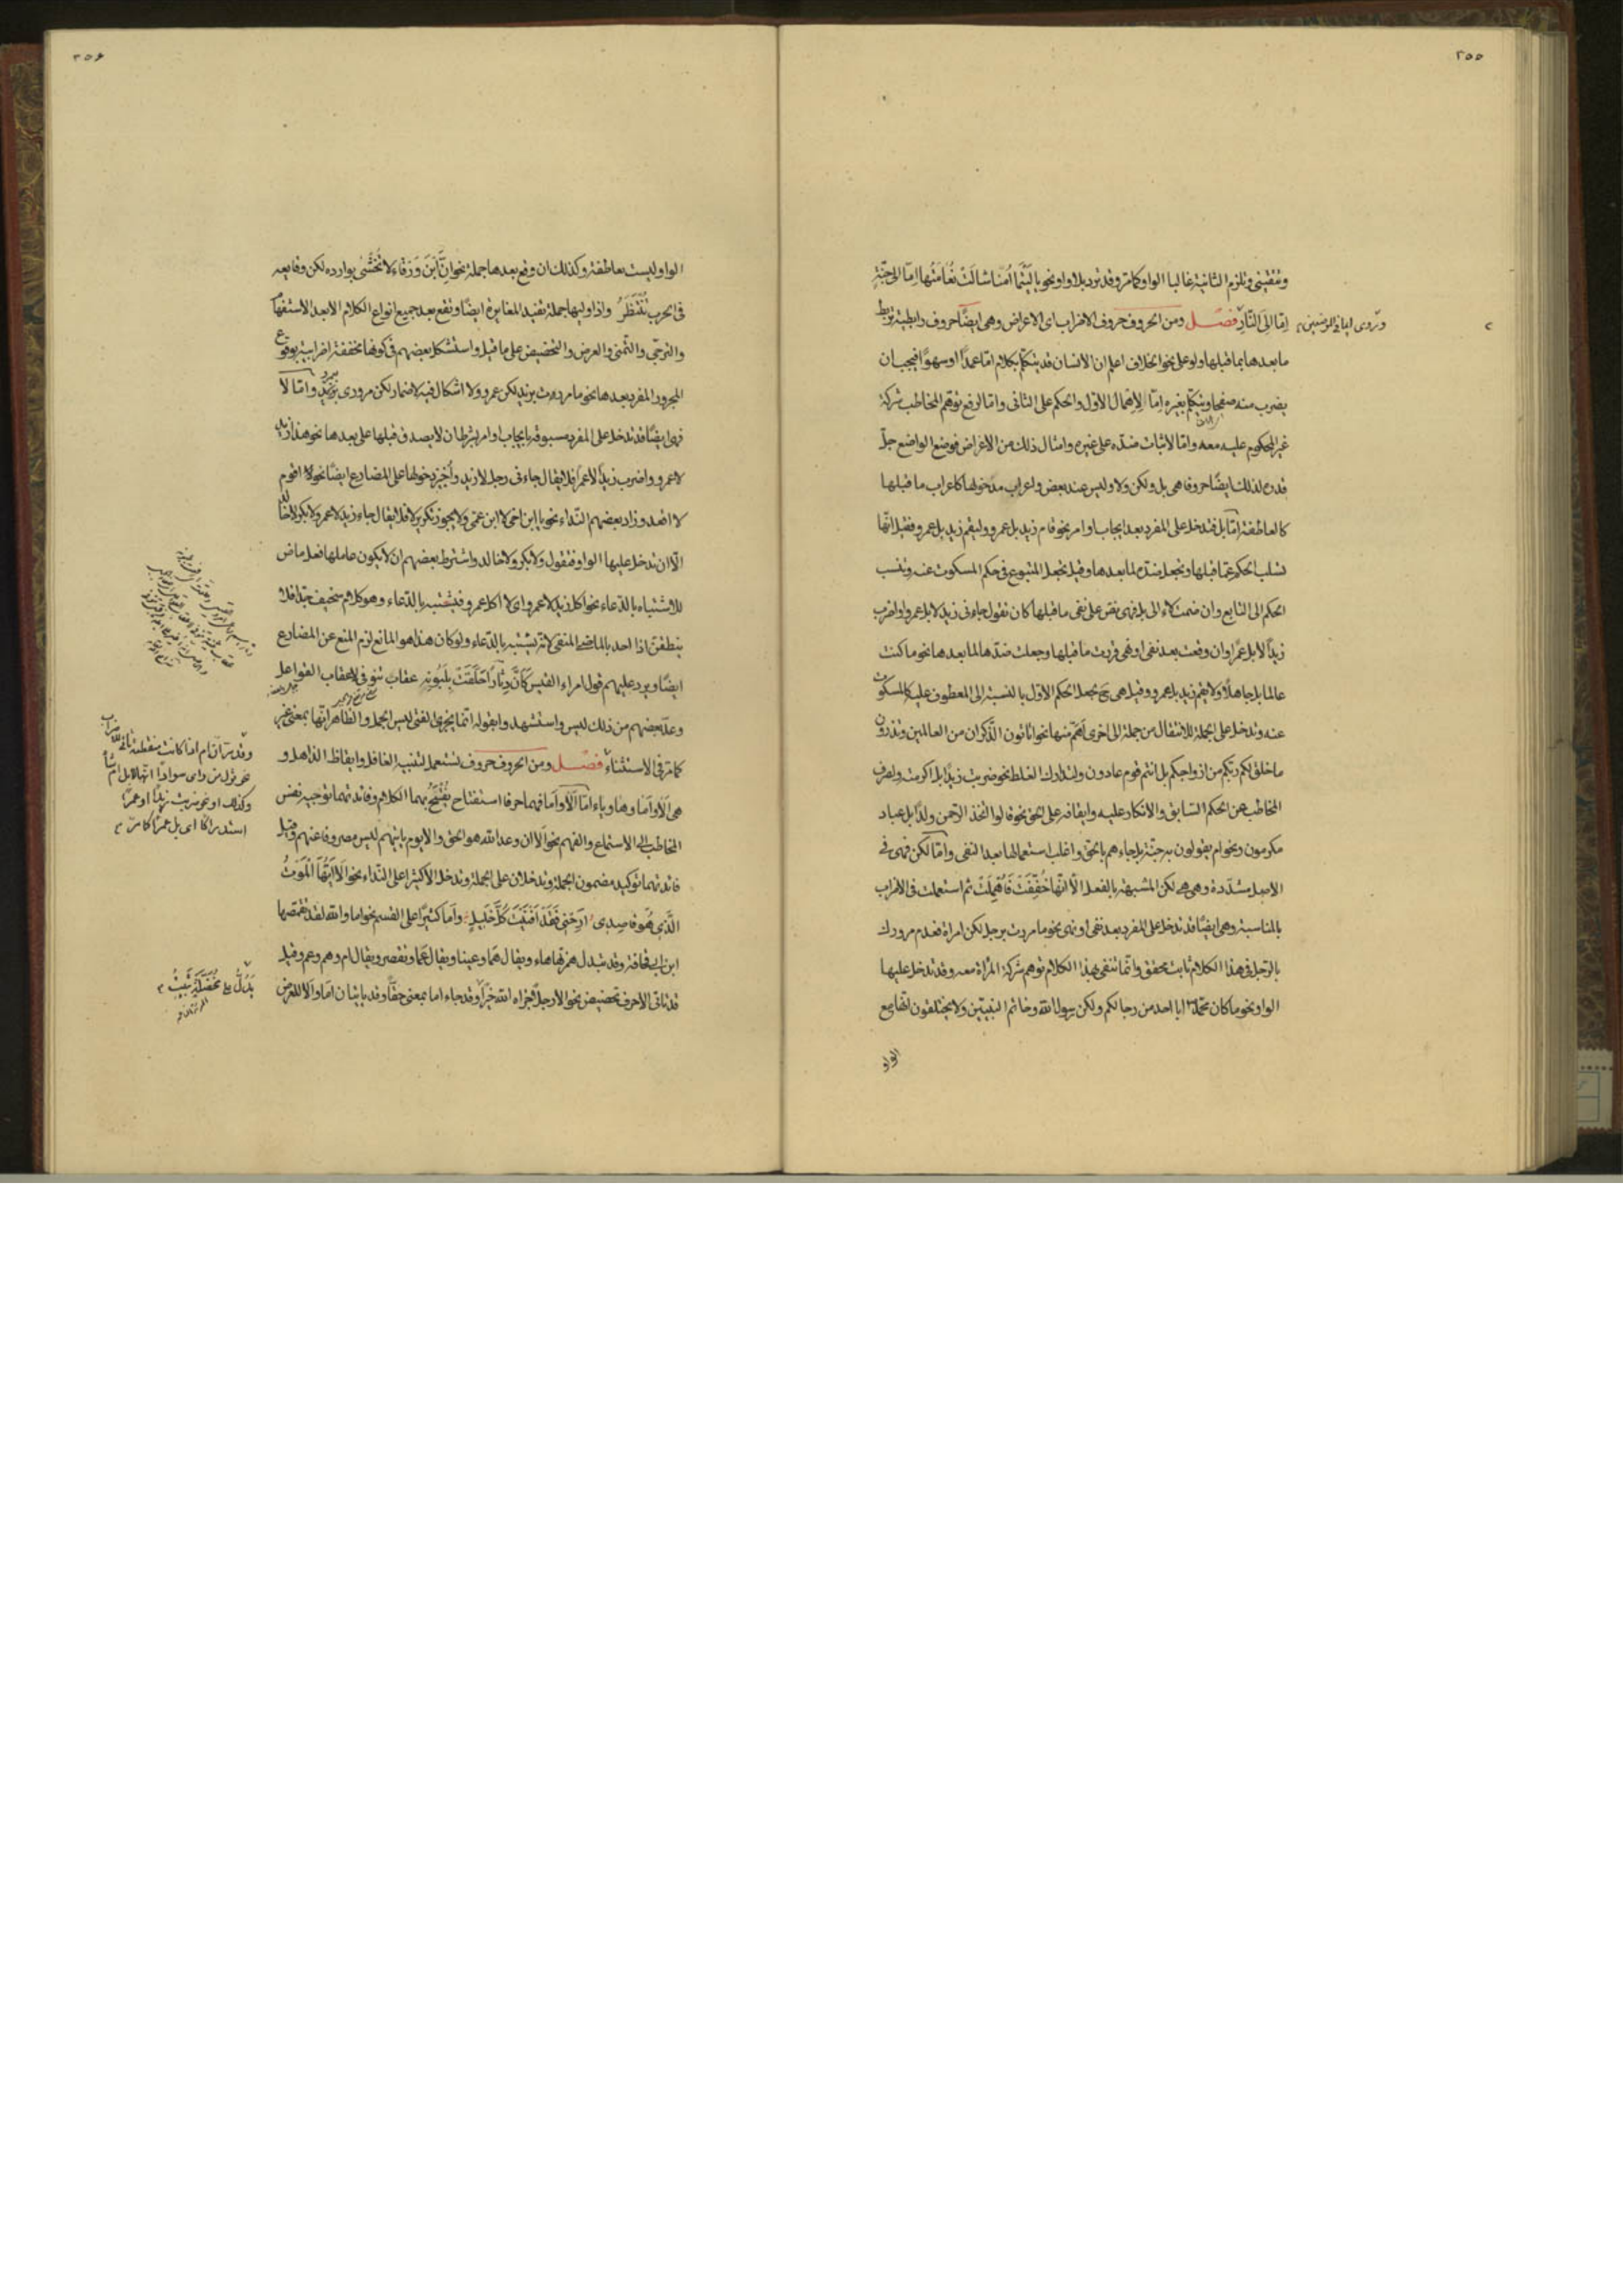 ٢٥٥
وتفتنى وتلزم الثانية غالبا الواو كما مر وقد ترد بلا واو نحو يا ليتما امنا شالت نعامتها اما الى جنة
اما الى النار فصل ومن الحروف حروف الاضراب اى الاعراض وهى ايضا حروف رابطية تربط
ما بعدها بما قبلها ولو على نحو الخلاف اعلم ان الانسان قد يتكلم بكلام اما عمدا او سهوا فيجب ان
يضرب منه صفحا ويتكلم بغيره اما لاهمال الاول والحكم على الثانى واما لرفع توهم المخاطب شركة
غير المحكوم عليه معه واما لاثبات ضده على غيره وامثال ذلك من الاغراض فوضع الواضع جل
قدره لذلك ايضا حروفا هى بل ولكن ولا وليس عند بعض واعراب مدخولها كاعراب ما قبلها
كالعاطفة اما بل فتدخل على المفرد بعد ايجاب وامر نحو قام زيد بل عمرو وليقم زيد بل عمرو فقيل انها
تسلب الحكم عما قبلها وتجعل ضده لما بعدها وقيل تجعل المتبوع فى حكم المسكوت عنه وتنسب
الحكم الى التابع وان ضمت لاء الى بل فهى نص على نفى ما قبلها كان تقول جاءنى زيد لا بل عمرو واضرب
زيدا لا بل عمرا وان وقعت بعد نفى او نهى قررت ما قبلها وجعلت ضدها لما بعدها نحو ما كنت
عالما بل جاهلا ولا يقم زيد بل عمرو وقيل هى ح تجعل الحكم الاول بالنسبة الى المعطوف عليه كالمسكوت
عنه وتدخل على الجملة للانتقال من جملة الى اخرى اهم منها نحو اتاتون الذكران من العالمين وتذرون
ما خلق لكم ربكم من ازواجكم بل انتم قوم عادون ولتدارك الغلط نحو ضربت زيدا بل اكرمت ولصرف
المخاطب عن الحكم السابق والانكار عليه وايقافه على الحق نحو قالوا اتخذ الرحمن ولدا بل عباد
مكرمون ونحو ام يقولون به جنة بل جاءهم بالحق واغلب استعمالها بعد النفى واما لكن فهى فى
الاصل مشددة وهى هى لكن المشبهة بالفعل الا انها خففت فاهملت ثم استعملت فى الاضراب
بالمناسبة وهى ايضا قد تدخل على المفرد بعد نفى او نهى نحو ما مررت برجل لكن امراة فعدم مرورك
بالرجل فى هذا الكلام ثابت محقق وانما تنفى بهذا الكلام توهم شركة المراة معه وقد تدخل عليها
الواو نحو ما كان محمد ابا احد من رجالكم ولكن رسول الله وخاتم النبيين ولا يختلفون انها مع
الواو
٢٥۶
الواو ليست بعاطفة وكذلك ان وقع بعدها جملة نحو ان ابن ورقاء لا تخشى بوادره لكن وقايعه
فى الحرب تنتظر واذا وليها جملة تفيد المغايرة ايضا وتقع بعد جميع انواع الكلام الا بعد الاستفهام
والترجى والتمنى والعرض والتحضيض على ما قيل واستشكل بعضهم فى كونها مخففة اضرابية بوقوع
المجرور المفرد بعدها نحو ما مررت بزيد لكن عمرو ولا اشكال فيه لاضمار لكن مرورى بزيد واما لا
فهى ايضا قد تدخل على المفرد مسبوقة بايجاب او امر بشرط ان لا يصدق قبلها على بعدها نحو هذا زيد
لا عمرو واضرب زيدا لا عمرا فلا يقال جاءنى رجل لا زيد واجيز دخولها على المضارع ايضا نحو لا اقوم
لا اقعد وزاد بعضهم النداء نحو يا ابن اخى لا ابن عمى ولا يجوز تكريرلا فلا يقال جاء زيد لا عمرو لا بكر لا خالد
الا ان تدخل عليها الواو فتقول ولا بكر ولا خالد واشترط بعضهم ان لا يكون عاملها فعل ماض
للاشتباه بالدعاء نحو اكل زيد لا عمرو اى لا اكل عمرو فيشتبه بالدعاء وهو كلام سخيف جدا فلا
ينطق اذا احد بالماضى المنفى لانه يشتبه بالدعاء ولو كان هذا هو المانع لزم المنع عن المضارع
ايضا ويرد عليهم قول امراء القيس كان دثارا حلقت بلبونه عقاب تنوفى لا عقاب القواعل
وعد بعضهم من ذلك ليس واستشهد وابقوله انما يجزى الفتى ليس الجمل والظاهر انها بمعنى غير
كما مر فى الاستثناء فصل ومن الحروف حروف تستعمل لتنبيه الغافل وايقاظ الذاهل و
هى الا واما وها وياء اما الا واما فهما حرفا استفتاح يفتح بهما الكلام وفائدتهما توجيه نفس
المخاطب الى الاستماع والفهم نحو الا ان وعد الله هو الحق والا يوم ياتيهم ليس مصروفا عنهم وقيل
فائدتهما توكيد مضمون الجملة وتدخلان على الجملة وتدخل الا كثيرا على النداء نحو الا ايها الموت
الذى هو قاصدى ارحنى فقد افنيت كل خليل واما كثيرا على القسم نحو اما والله لقد تقمصها
ابن ابى قحافة وقد تبدل همزتها هاء ويقال هما وعينا ويقال عما وتقصر ويقال ام وهم وعم وقيل
قد تاتى الا حرف تحضيض نحو الا رجلا جزاه الله خيرا وقد جاء اما بمعنى حقا وقد ياتيان اما والا للعرض
وقد مر ان ام اذا كانت منقطعة
وكذلك او نحو ضربت زيدا او عمرا
استدراكا اى بل عمرا كما مر
يدل على محصلة تبيت